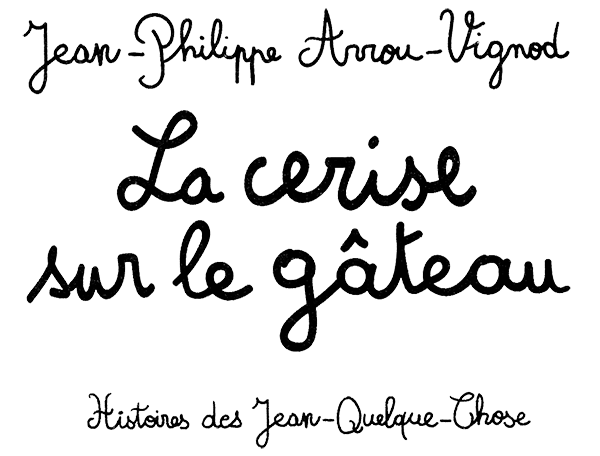 Jean-Philippe Arrou-Vignod
La cerise
sur le gâteau
Histoires des Jean-Quelque-Chose